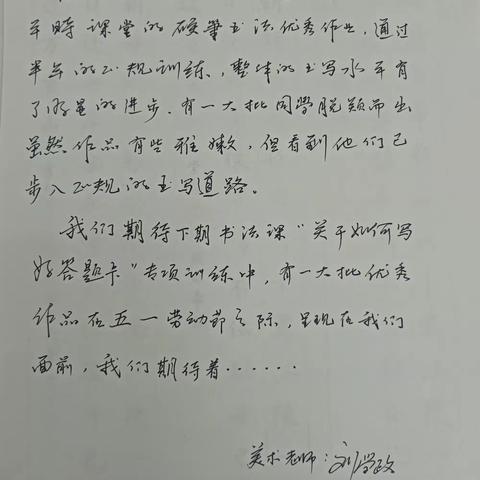 平时课堂的硬笔书法优秀作业，通过
半年的正规训练，整体的书写水平有
了明显的进步、有一大批同学脱颖而出
虽然作品有些稚嫩，但看到他们已
步入正规的书写道路。
我们期待下期书法课“关于如何写
好答题卡”专项训练中，有一大批优秀
作品在五一劳动节之际，呈现在我们
面前，我们期待着······
美术老师：刘学政